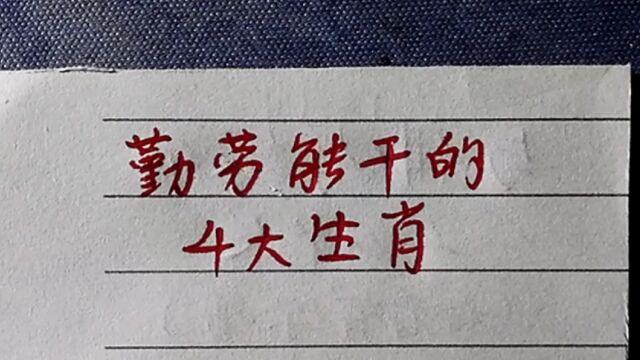 勤劳能干的
4大生肖